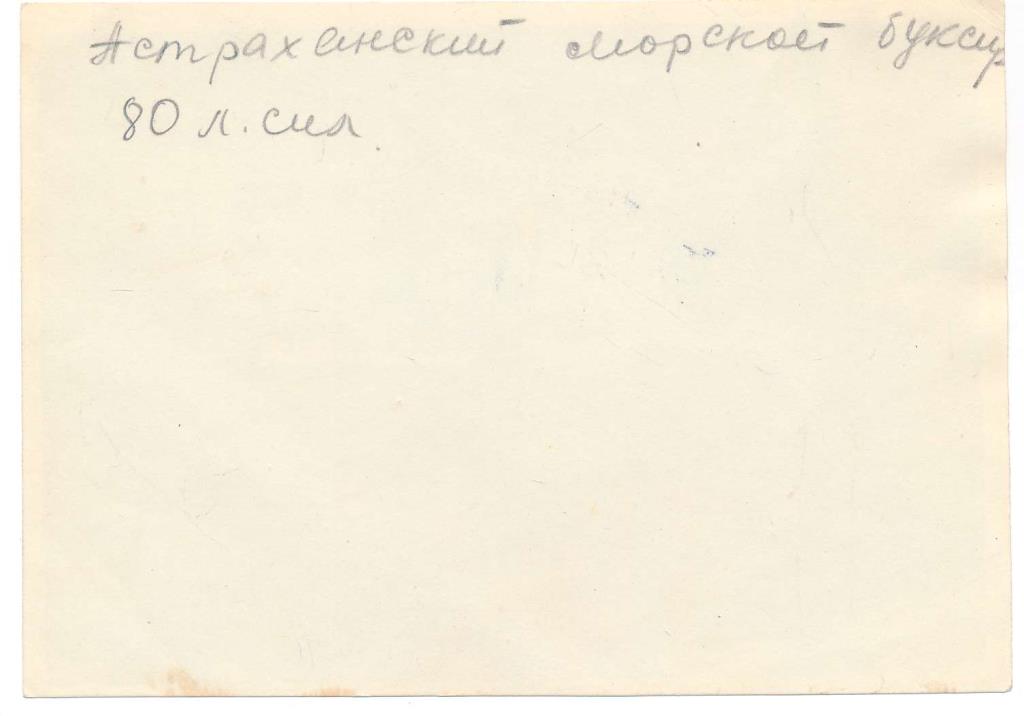 Астраханский морской буксир
80 л. сил